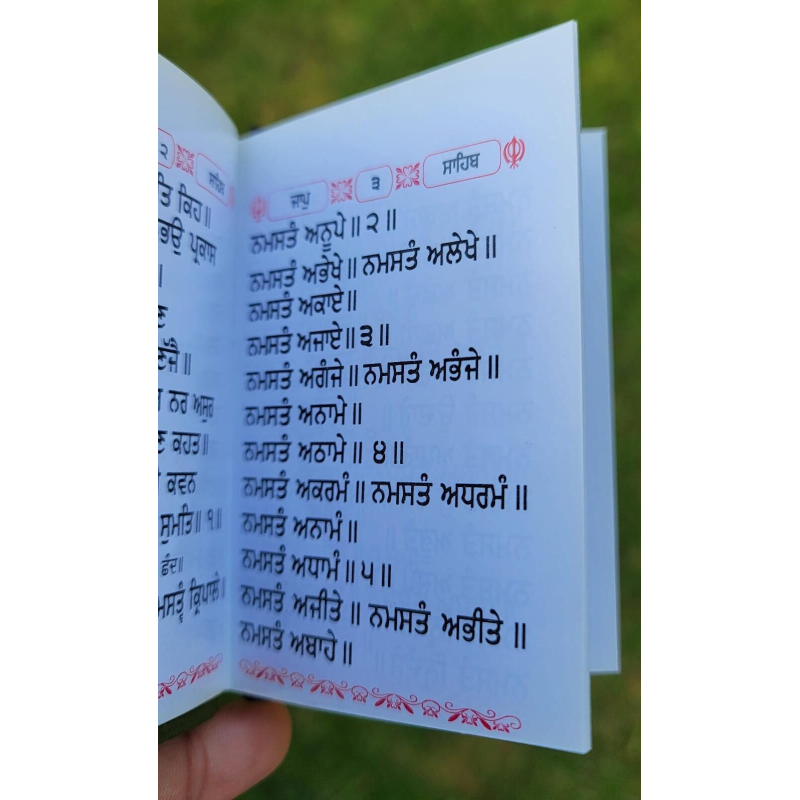 ੨ ਸਾਹਿਬ
ਤਿ ਕਿਹ॥
ਭਉ ਪ੍ਰਕਾਸ
॥
ਨਰ ਅਸੁਰ
ਕਹਤ॥
ਕਵਨ
ਸੁਮਤਿ॥ ੧॥
ਛੰਦ॥
ਮਸਤ੍ਵੰ ਕ੍ਰਿਪਾਲੇ॥
ਜਾਪੁ ੩ ਸਾਹਿਬ
ਨਮਸਤੰ ਅਨੂਪੇ॥੨॥
ਨਮਸਤੰ ਅਭੇਖੇ॥ ਨਮਸਤੰ ਅਲੇਖੇ॥
ਨਮਸਤੰ ਅਕਾਏ॥
ਨਮਸਤੰ ਅਜਾਏ॥੩॥
ਨਮਸਤੰ ਅਗੰਜੇ॥ ਨਮਸਤੰ ਅਭੰਜੇ॥
ਨਮਸਤੰ ਅਨਾਮੇ॥
ਨਮਸਤੰ ਅਠਾਮੇ॥ ੪॥
ਨਮਸਤੰ ਅਕਰਮੰ॥ ਨਮਸਤੰ ਅਧਰਮੰ॥
ਨਮਸਤੰ ਅਨਾਮੰ॥
ਨਮਸਤੰ ਅਧਾਮੰ॥੫॥
ਨਮਸਤੰ ਅਜੀਤੇ॥ ਨਮਸਤੰ ਅਭੀਤੇ॥
ਨਮਸਤੰ ਅਬਾਹੇ॥